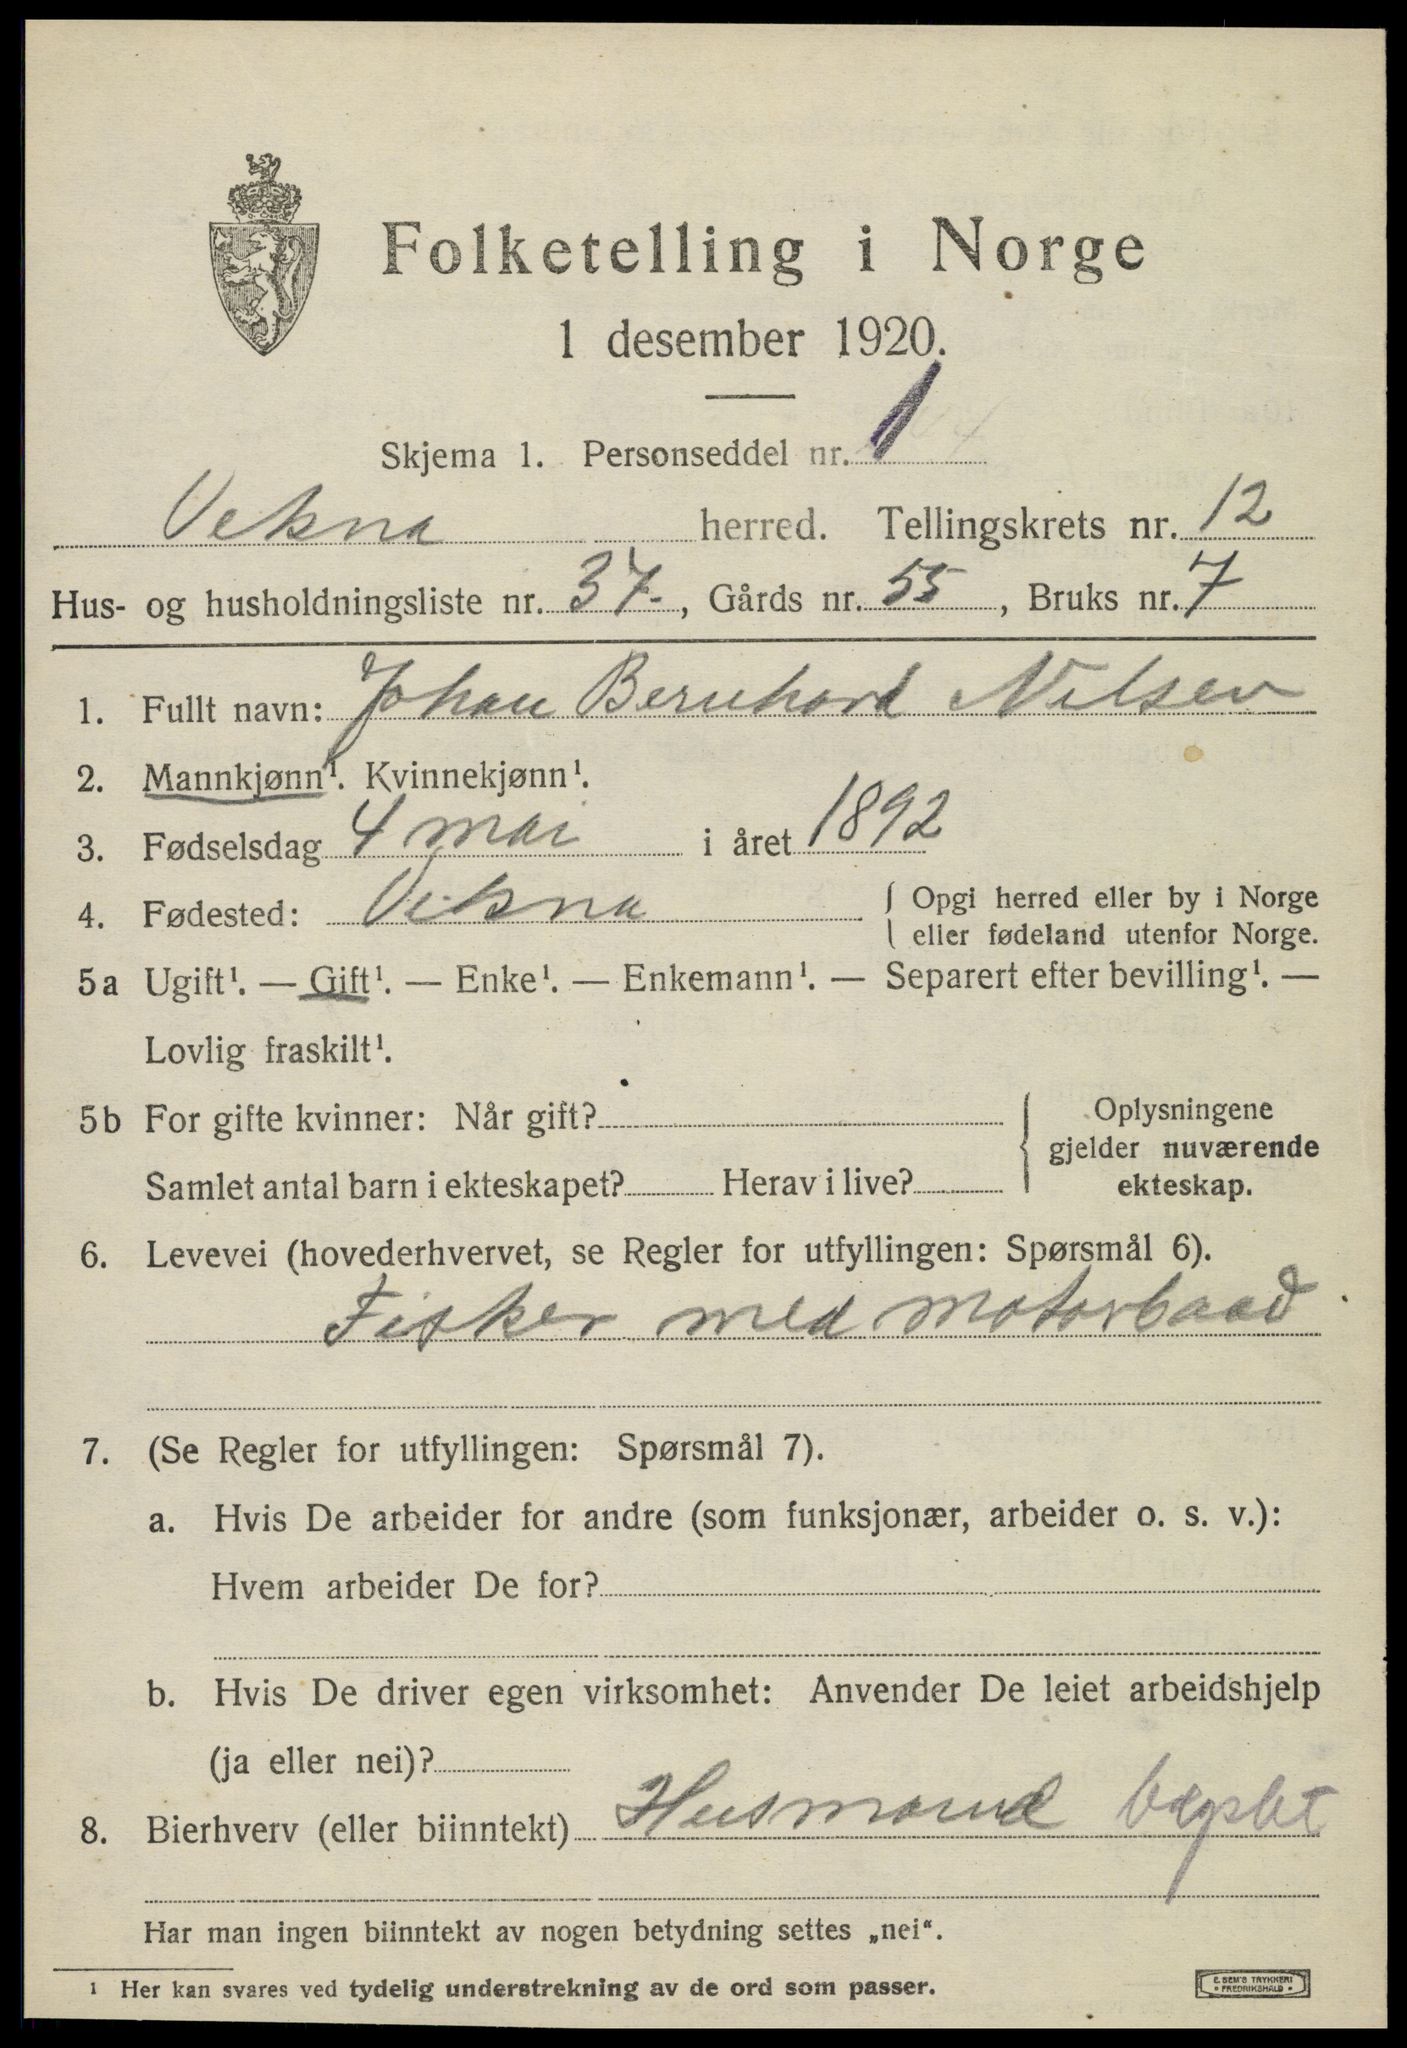 Folketelling i Norge
1 desember 1920.
Skjema 1. Personseddel nr. 1
Vekna herred. Tellingskrets nr. 12
Hus- og husholdningsliste nr. 37-, Gårds nr. 55, Bruks nr. 7
1. Fullt navn: Johan Bernhard Nilsen
2. Mannkjønn¹. Kvinnekjønn¹.
3. Fødselsdag 4 mai i året 1892
4. Fødested: Vikna { Opgi herred eller by i Norge
eller fødeland utenfor Norge.
5a Ugift¹. — Gift¹. — Enke¹. — Enkemann¹. — Separert efter bevilling¹. —
Lovlig fraskilt¹.
5b For gifte kvinner: Når gift? { Oplysningene
gjelder nuværende
Samlet antal barn i ekteskapet? Herav i live? ekteskap.
6. Levevei (hovederhvervet, se Regler for utfyllingen: Spørsmål 6).
Fisker med motorbaad
7. (Se Regler for utfyllingen: Spørsmål 7).
a. Hvis De arbeider for andre (som funksjonær, arbeider o. s. v.):
Hvem arbeider De for?
b. Hvis De driver egen virksomhet: Anvender De leiet arbeidshjelp
(ja eller nei)?
8. Bierhverv (eller biinntekt) Husmand
Har man ingen biinntekt av nogen betydning settes „nei“.
¹ Her kan svares ved tydelig understrekning av de ord som passer.
E. SEM'S TRYKKERI
• FREDRIKSHALD •